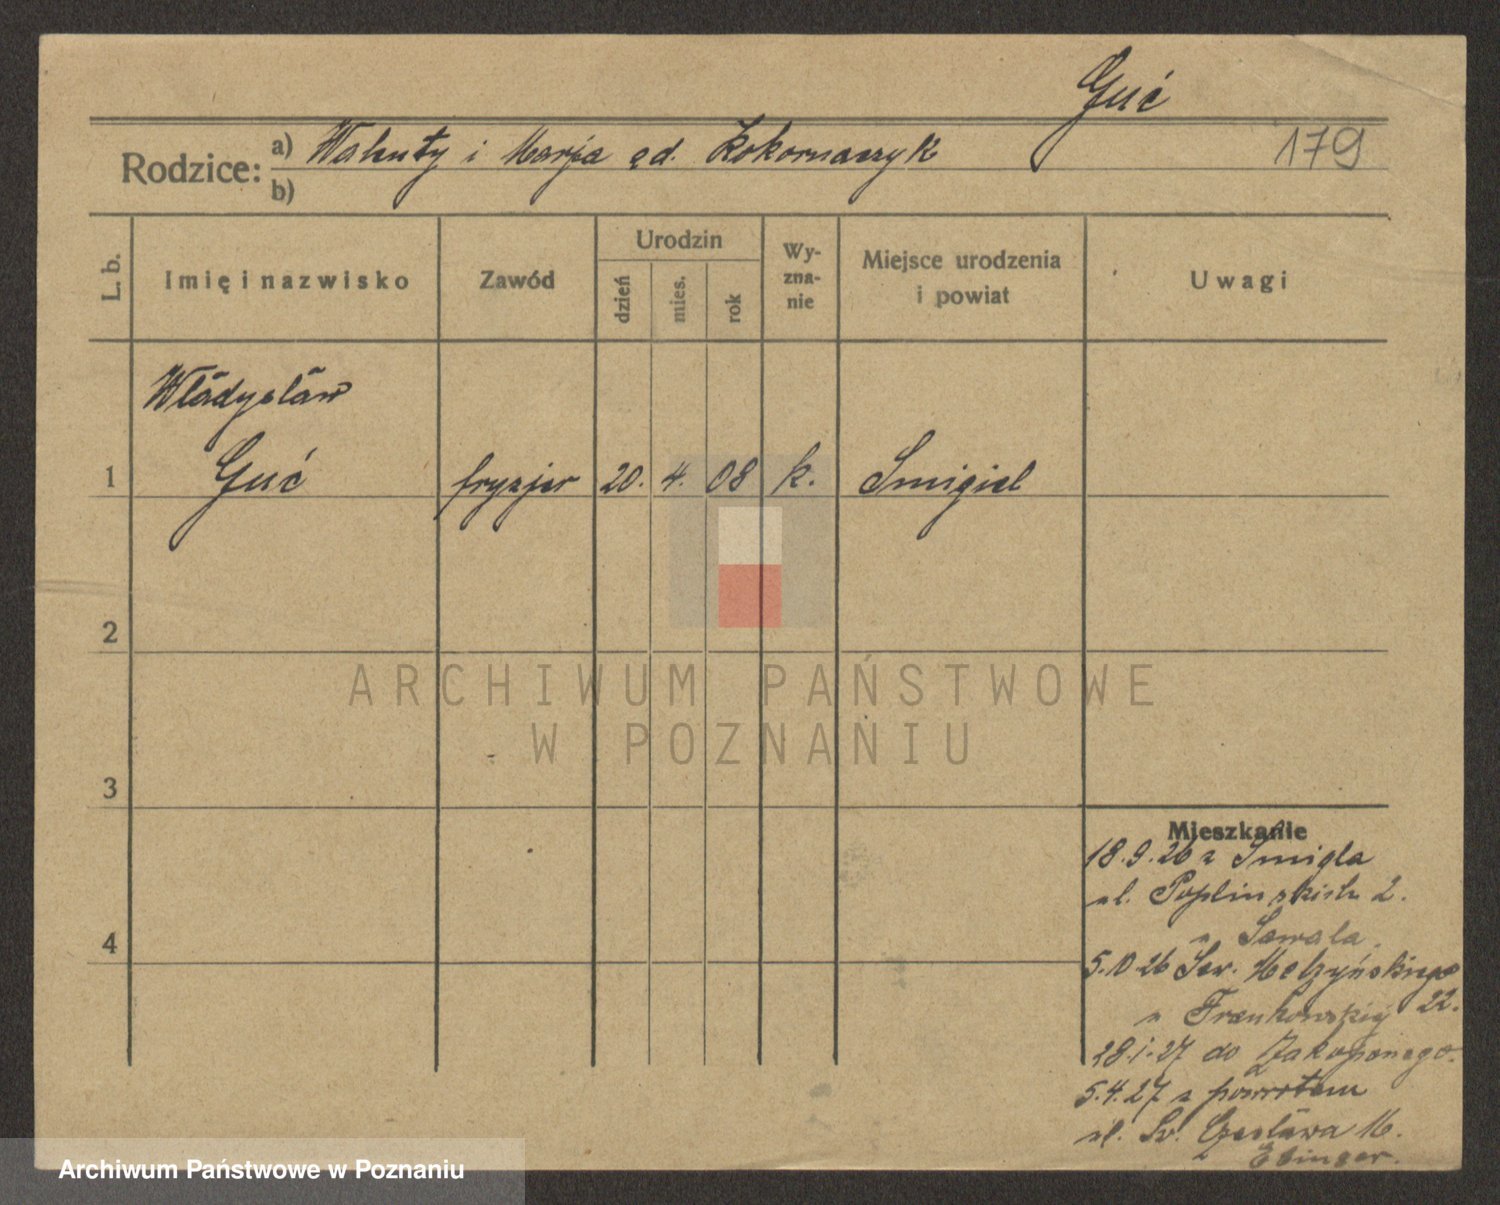 Guć
179
Rodzice:
a) Walenty i Marja ąd. Kokornaczyk
b)
L. b.
Imię i nazwisko
Zawód
Urodzin
dzień
mies.
rok
Wy-
zna-
nie
Miejsce urodzenia
i powiat
Uwagi
Władysław
1 Guć fryzjer 20. 4. 08 k. Smigiel
2
3
4
Mieszkanie
18.9.26 z Smigla
ul. Poplinskich 2.
5.10.26 Sew. Mielżyńskiego
22.
u Frankowskiej
28.1.27 do Zakopanego.
5.4.27 z powrotem
ul. Św. Czesława
ARCHIWUM PAŃSTWOWE
W POZNANIU
Archiwum Państwowe w Poznaniu